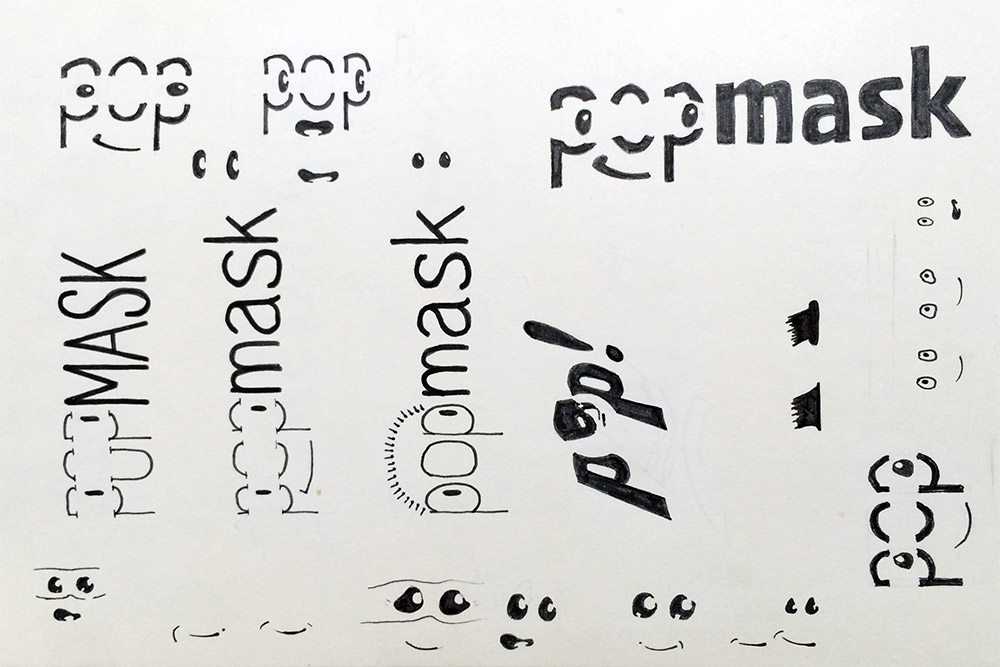 pop
pop
popmask
POPMASK
popmask
popmask
pop!
pop